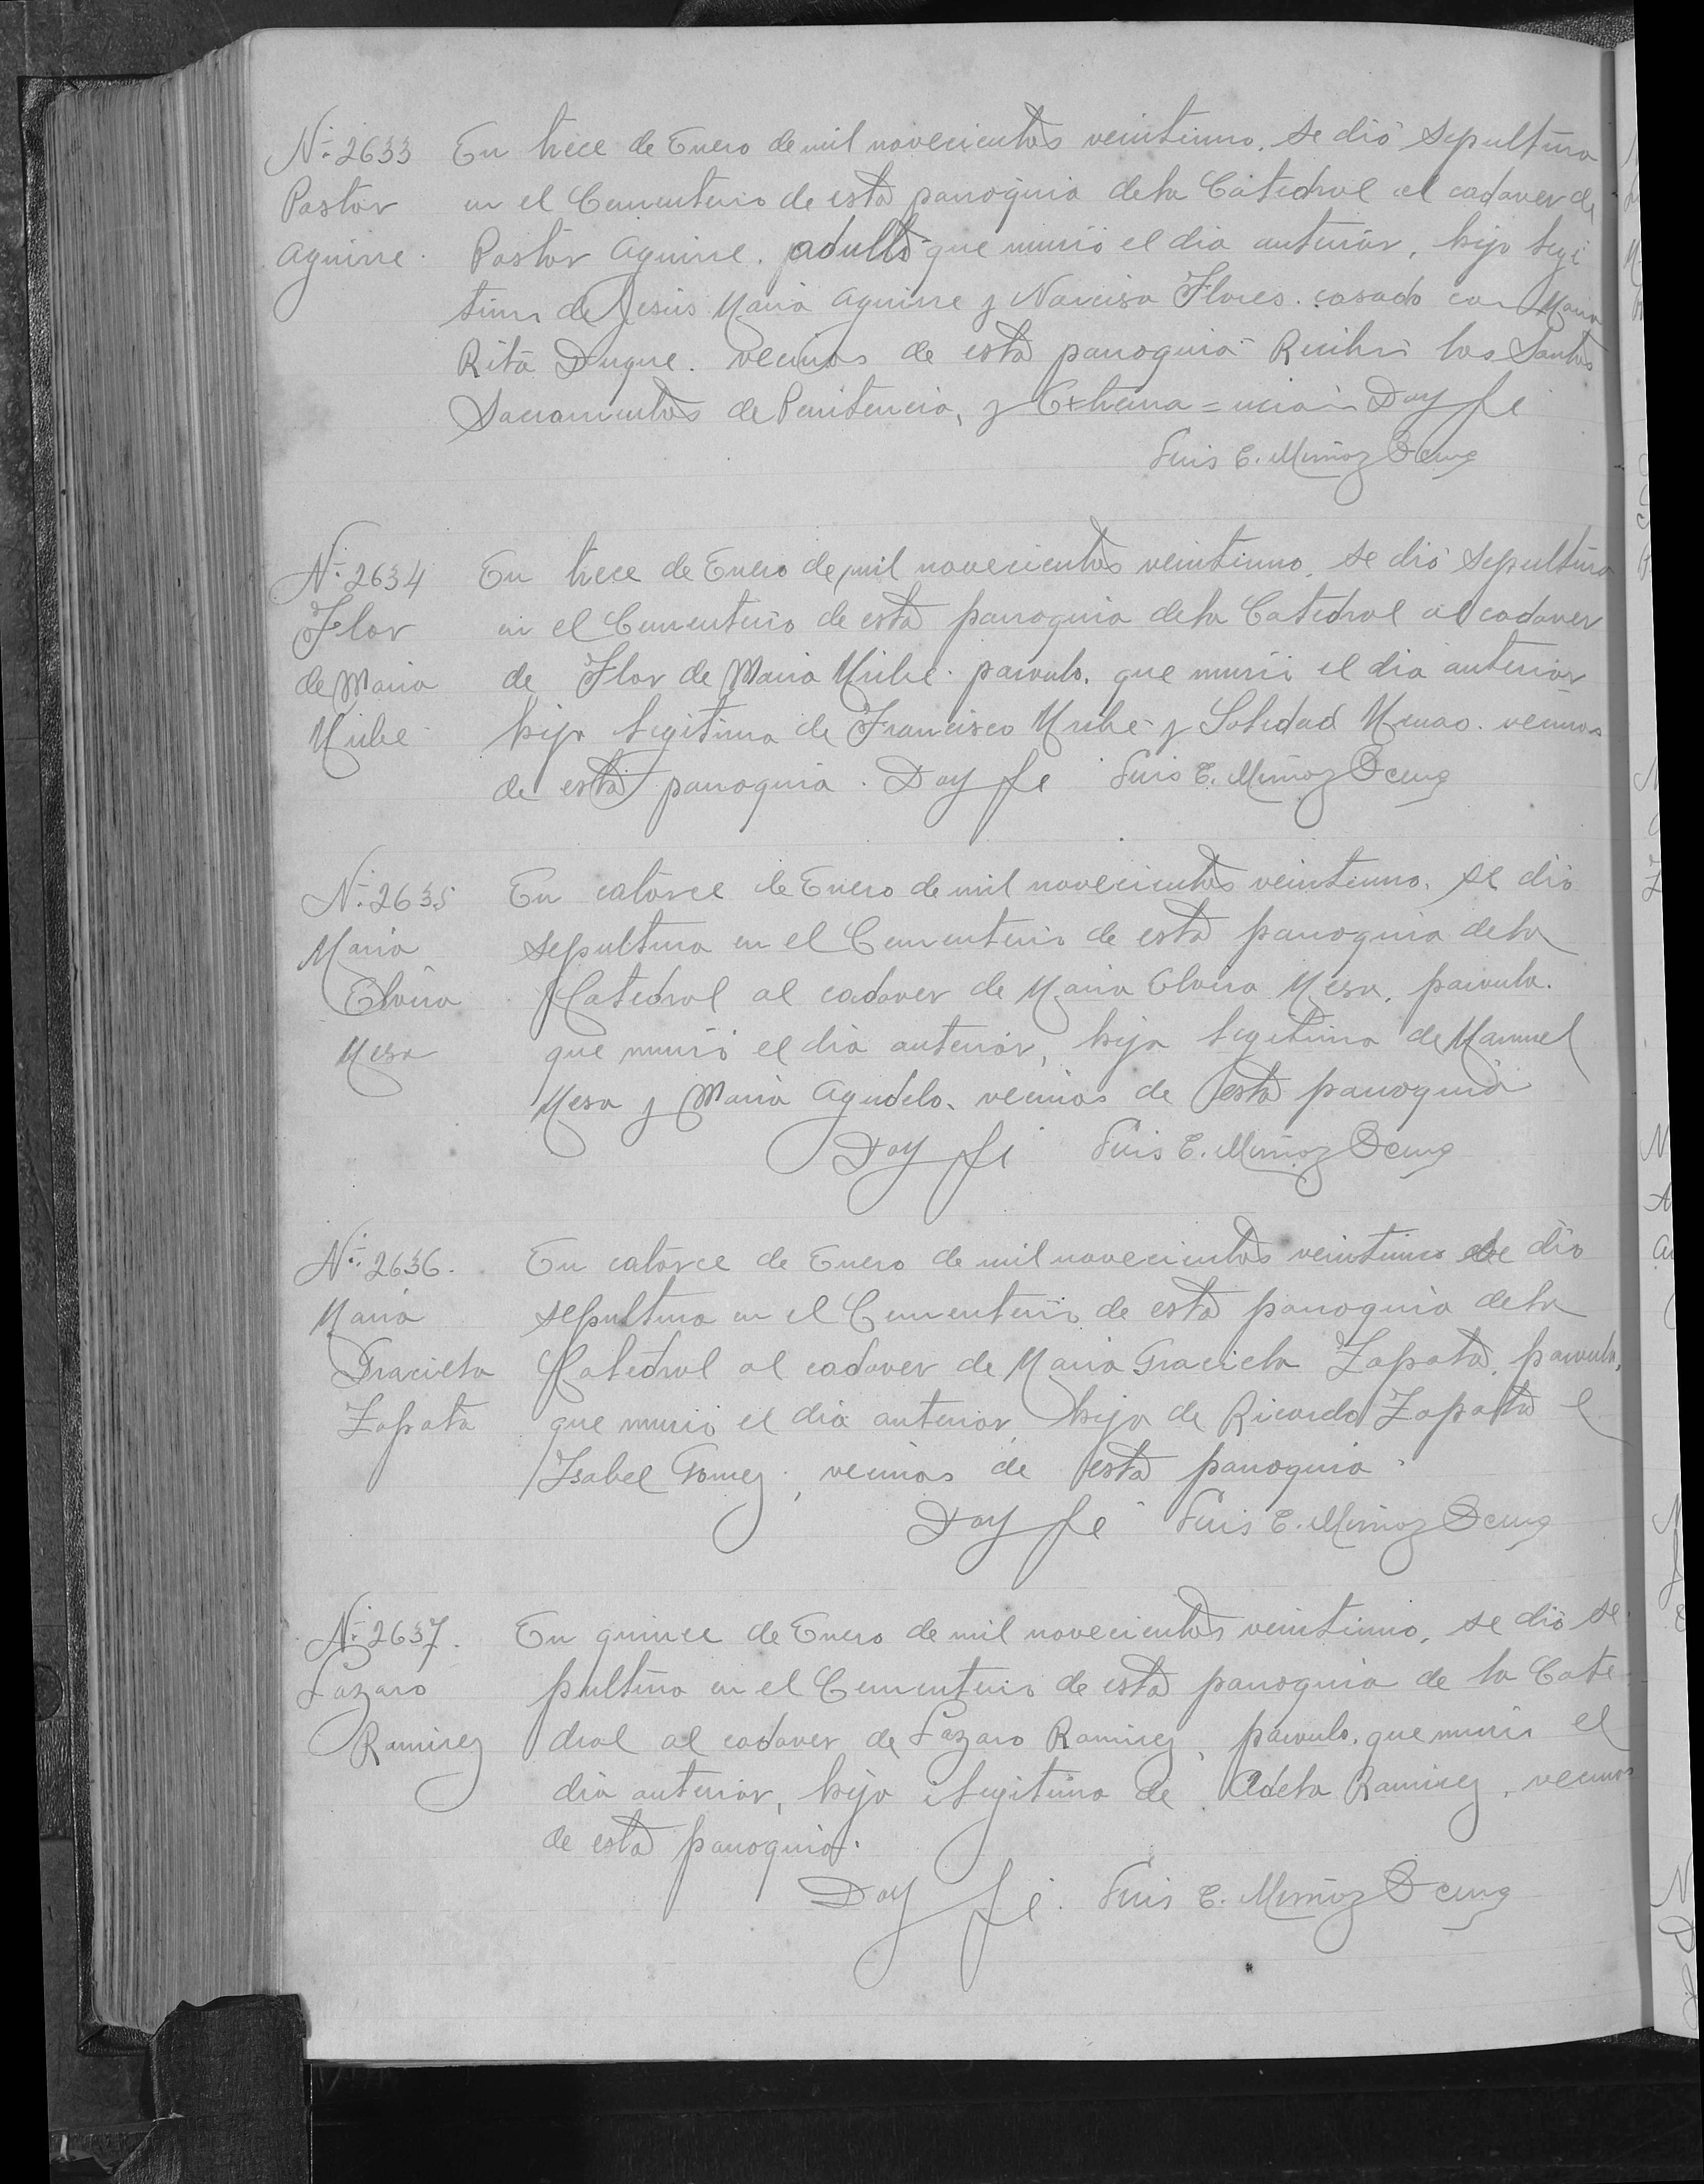 Nº 2633 En trece de Enero de mil novecientos veintiuno, se dió sepultura
Pastor en el Cementerio de esta parroquia de la Catedral al cadaver de
Aguirre. Pastor Aguirre. adulto que murió el dia anterior, hijo legi
timo de Jesús Maria Aguirre y Narcisa Flores. casado con Maria
Rita Duque. vecinos de esta parroquia Recibió los Santos
Sacramentos de Penitencia, y Extrema=unción Doy fe
Luis E. Muñoz
Nº 2634 En trece de Enero de mil novecientos veintiuno, se dió sepultura
Flor en el Cementerio de esta parroquia de la Catedral al cadaver
de Maria de Flor de Maria Uribe. parvulo. que murió el dia anterior
Uribe hija legitima de Francisco Uribe y Soledad Henao. vecinos
de esta parroquia. Doy fe Luis E. Muñoz
Nº 2635 En catorce de Enero de mil novecientos veintiuno. se dió
Maria sepultura en el Cementerio de esta parroquia de la
Elvira Catedral al cadaver de Maria Elvira Mesa, parvula.
Mesa que murió el dia anterior, hija legitima de Manuel
Mesa y Maria Agudelo. vecinos de esta parroquia
Doy fe Luis E. Muñoz
Nº 2636. En catorce de Enero de mil novecientos veintiuno se dió
Maria sepultura en el Cementerio de esta parroquia de la
Graciela Catedral al cadaver de Maria Graciela Zapata, parvula,
Zapata que murió el dia anterior, hija de Ricardo Zapata e
Isabel Gomez, vecinos de esta parroquia.
Doy fe Luis E. Muñoz
Nº 2637. En quince de Enero de mil novecientos veintiuno, se dió se
Lazaro pultura en el Cementerio de esta parroquia de la Cate
Ramirez dral al cadaver de Lazaro Ramirez, parvulo. que murió el
dia anterior, hijo ilegitimo de Adela Ramirez, vecinos
de esta parroquia.
Doy fe. Luis E. Muñoz